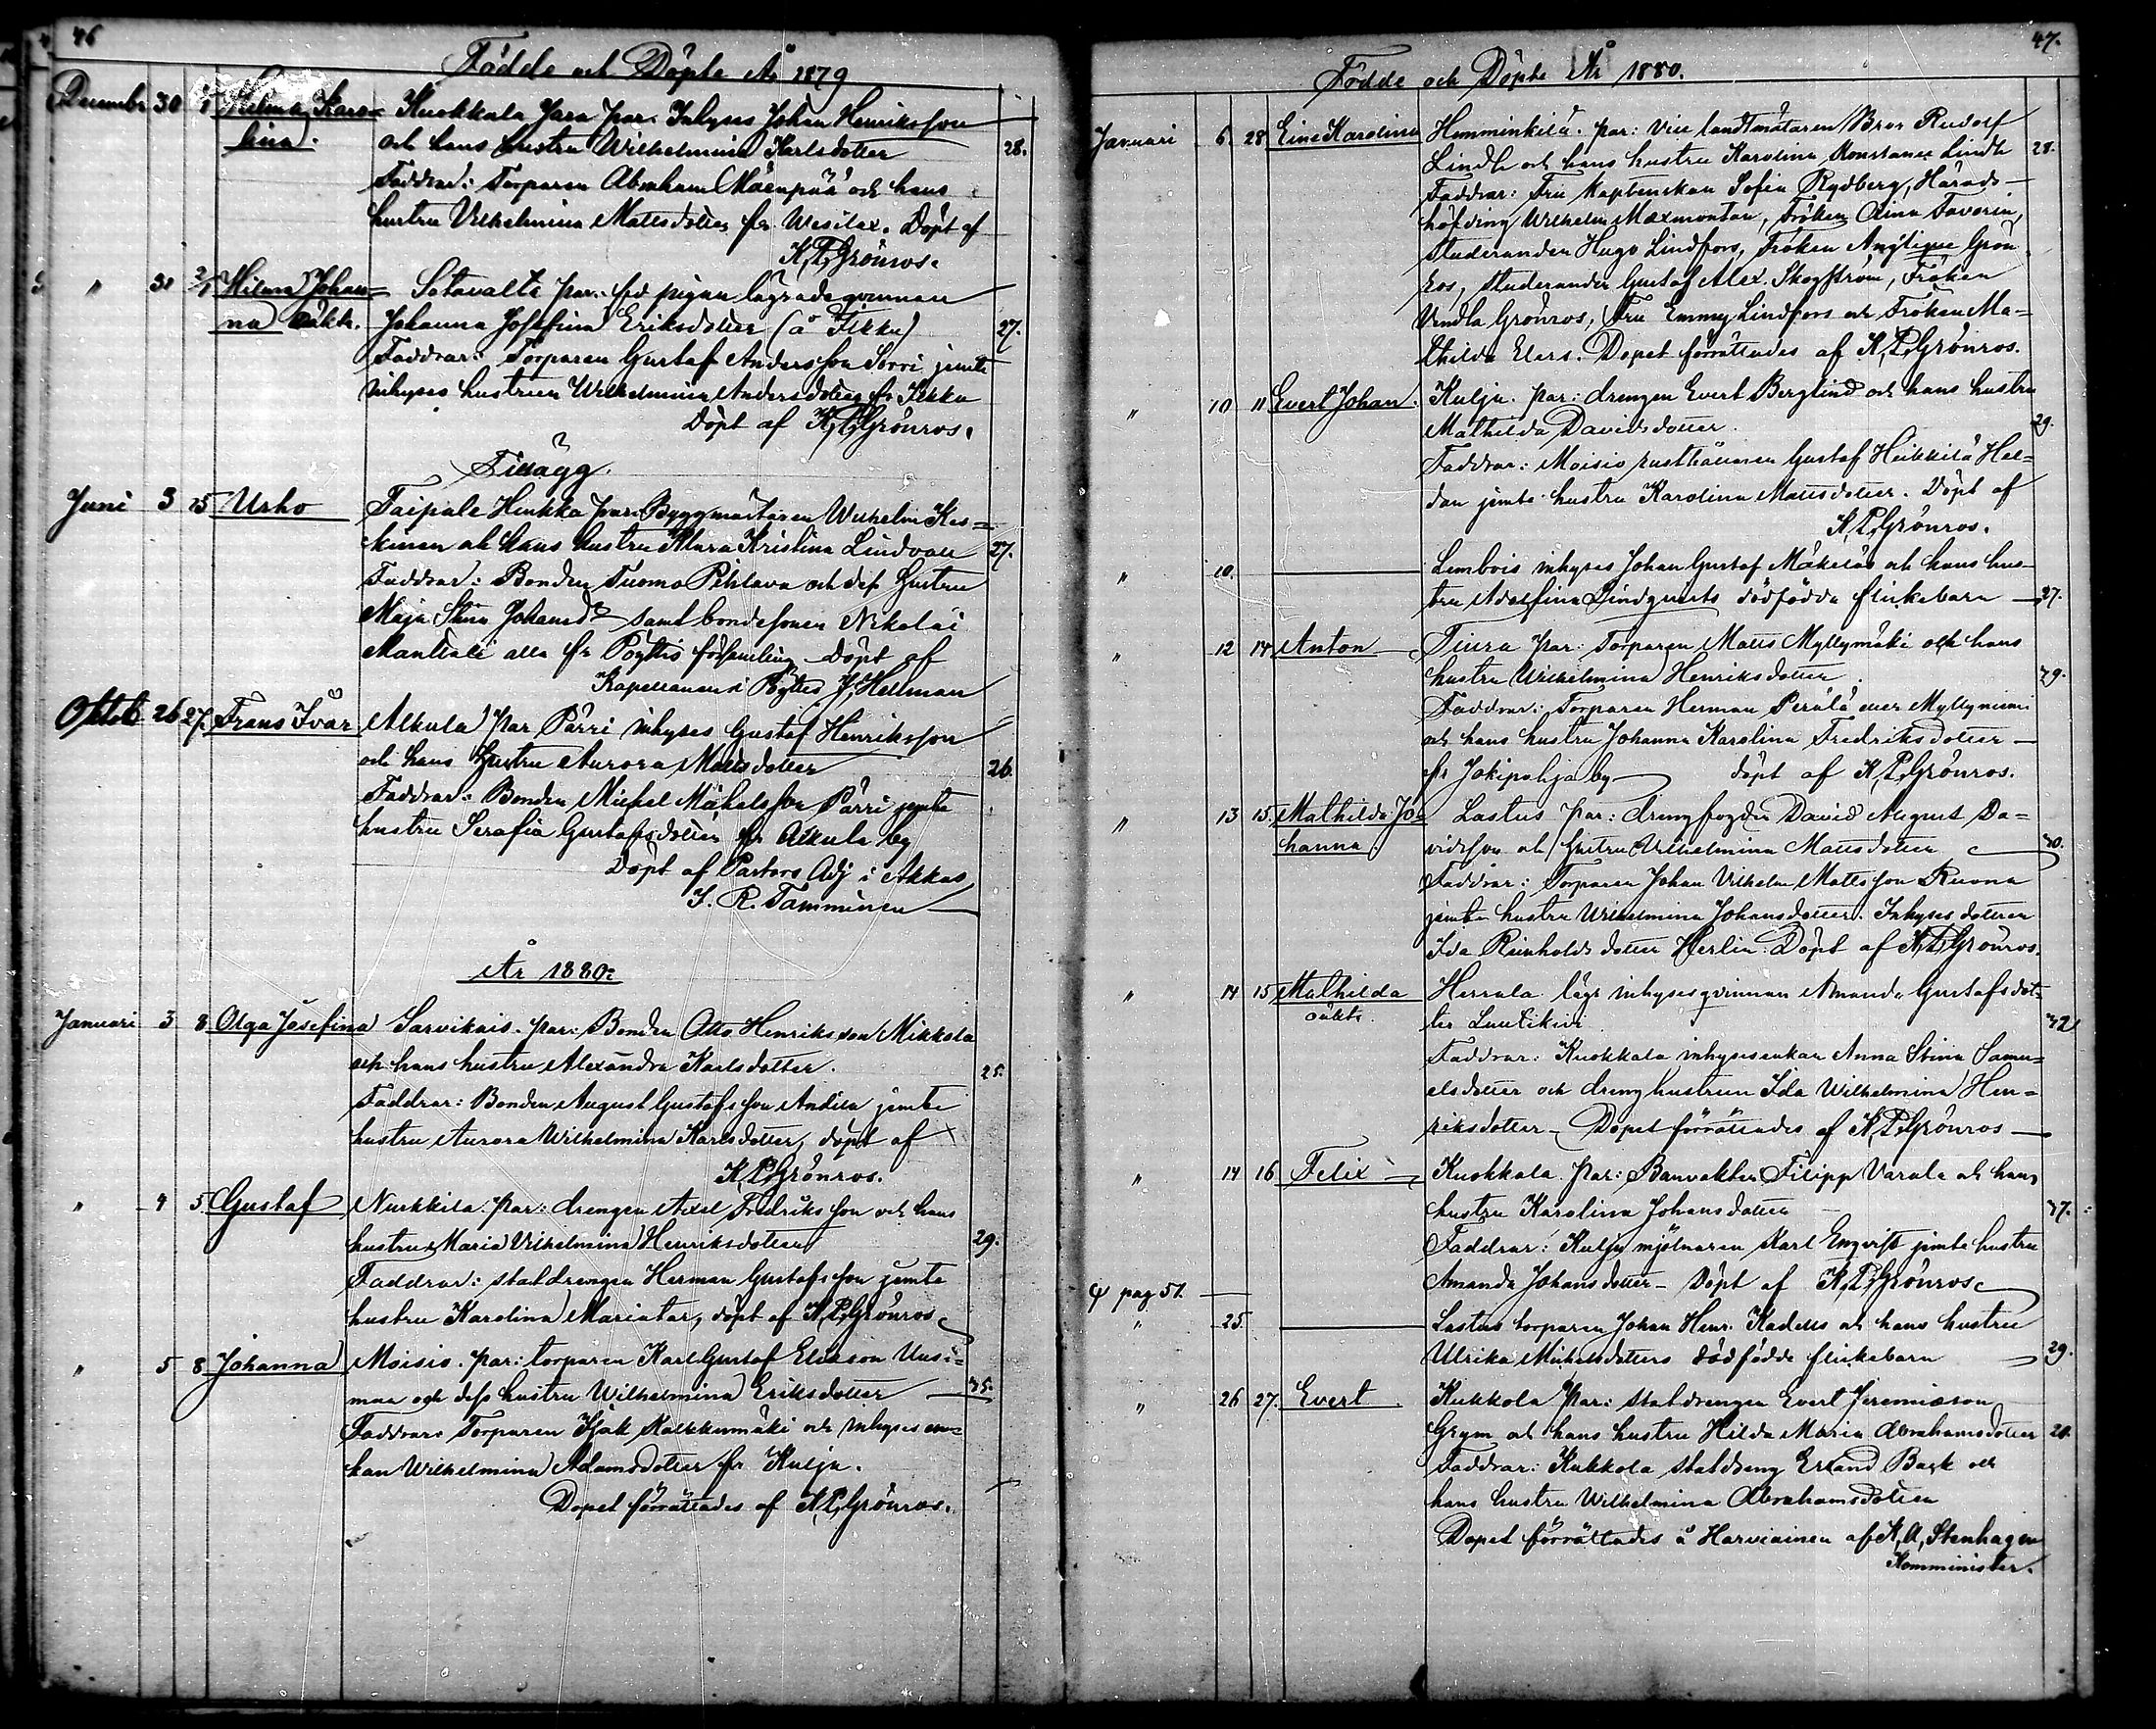 46
Födde och Döpte År 1879
Decembr 30 1/1 Helena Karo- Kuokkala Jara par. Inhyses Johan Henriksson
lina. och hans hustru Wilhelmina Karlsdotter 28.
Faddrar: Torparen Abraham Mäenpää och hans
hustru Wilhelmina Mattsdotter fr Wesilax. Döpt af
K, P, Grönros.
" 31 2/1 Hilma Johan- Sotavalta par. frd pigan lägrade qvinnan
na oäkta. Johanna Josefina Eriksdotter (å Fikku) 27.
Faddrar: Torparen Gustaf Andersson Sorri jemte
inhyses hustrun Wilhelmina Andersdotter fr Sikku
Döpt af K, P, Grönros.
Tillägg.
Juni 3 15 Urho Taipale Heikka par. Byggmästaren Wilhelm Kes-
kinen och hans hustru Klara Kristina Lindvall 27.
Faddrar: Bonden Tuomo Pihlava och dess hustru
Maja Stina Johansdr samt bondesonen Nikolai
Mantali alla fr Pöytis församling Döpt af
Kapellanen i Pöytis J, Hellman
Oktob 26 27. Frans Ivar Alkula par Pärri inhyses Gustaf Henriksson
och hans hustru Aurora Mattsdotter 26.
Faddrar: Bonden Mickel Mickelsson Pärri jemte
hustru Serafia Gustafsdotter fr Alkula by
Döpt af Pastors Adj i Akkas
J. R. Tamminen
År 1880:
Januari 3 8 Olga Josefina Sarvikais. par: Bonden Otto Henriksson Mikkola
och hans hustru Alexandra Karlsdotter. 25.
Faddrar: Bonden August Gustafsson Andila jemte
hustru Aurora Wilhelmina Karlsdotter, döpt af
K, P, Grönros.
" 4 5 Gustaf Nurkkila. par: drengen Axel Fredriksson och hans
hustru Maria Vilhelmina Henriksdotter 29.
Faddrar: staldrengen Herman Gustafsson jemte
hustru Karolina Mariatar, döpt af K, P, Grönros
" 5 8 Johanna Moisio. par: torparen Karl Gustaf Eliasson Uusi-
maa och dess hustru Wilhelmina Eriksdotter 35.
Faddrar: Torparen Isak Kalkkumäki och inhyses en-
kan Wilhelmina Adamsdotter fr Kulju.
Dopet förrättades af K, P, Grönros.
47.
Födde och Döpte År 1880.
Januari 6 28 Eine Karolina Hemminkilä. par: Vice landtmätaren Bror Rudolf
Lindh och hans hustru Karolina Konstance Lindh 28.
Faddrar: Fru kaptenskan Sofia Rydberg, Härads-
höfding Wilhelm Maxmontan, Fröken Olina Favorin,
Studeranden Hugo Lindfors, Fröken Angelique Grön
ros, Studeranden Gustaf Alex. Skogström, Fröken
Vendla Grönros, Fru Emmy Lindfors och Fröken Ma-
thilda Elers. Dopet förrättades af K, P, Grönros.
" 10 11 Evert Johan. Kulju. par: drengen Evert Berglind och hans hustru
Mathilda Davidsdotter. 29.
Faddrar: Moisio rusthållaren Gustaf Heikkilä Hel-
dan jemte hustru Karolina Mattsdotter. Döpt af
K, P, Grönros.
" 10. Lembois inhyses Johan Gustaf Mäkelä och hans hus-
tru Adolfina Lindqvists dödfödda flickebarn 27.
" 12 14 Anton Tiura par: Torparen Matts Myllymäki och hans
hustru Wilhelmina Henriksdotter. 79.
Faddrar: Torparen Herman Perälä eller Myllyniemi
och hans hustru Johanna Karolina Fredriksdotter
fr Jokipohja by döpt af K, P, Grönros.
" 13 15. Mathilda Jo- Lastus par: drengfogden David August Da-
hanna. vidsson och hustru Wilhelmina Mattsdotter 30.
Faddrar: Torparen Johan Vilhelm Mattsson Ruona
jemte hustru Wilhelmina Johansdotter. Inhyses dottren
Ida Reinholds dotter Herlin. Döpt af K, P, Grönros.
" 14 15 Mathilda Herrala lägr inhysesqvinnan Amanda Gustafsdot-
oäkta. ter Luutikivi. 42
Faddrar: Kuokkala inhysesenkan Anna Stina Samu-
elsdotter och drenghustrun Ida Wilhelmina Hen-
riksdotter - Dopet förrättades af K, P, Grönros
" 14 16 Felix Kuokkala par: Banvakten Filipp Varala och hans
hustru Karolina Johansdotter 47.
Faddrar: Kulju mjölnaren Karl Enqvist jemte hustru
Amanda Johansdotter - Döpt af K, P, Grönros
φ pag 51.
" 25 Lastus torparen Johan Henr. Kadells och hans hustru
Ulrika Mickelsdotters dödfödda flickebarn 29.
" 26 27. Evert Kukkola par: staldrengen Evert Jeremiasson
Grym och hans hustru Hilda Maria Abrahamsdotter 28.
Faddrar: Kukkola staldreng Erland Back och
hans hustru Wilhelmina Abrahamsdotter
Dopet förrättades å Harviainen af K, A, Stenhagen
Komminister.